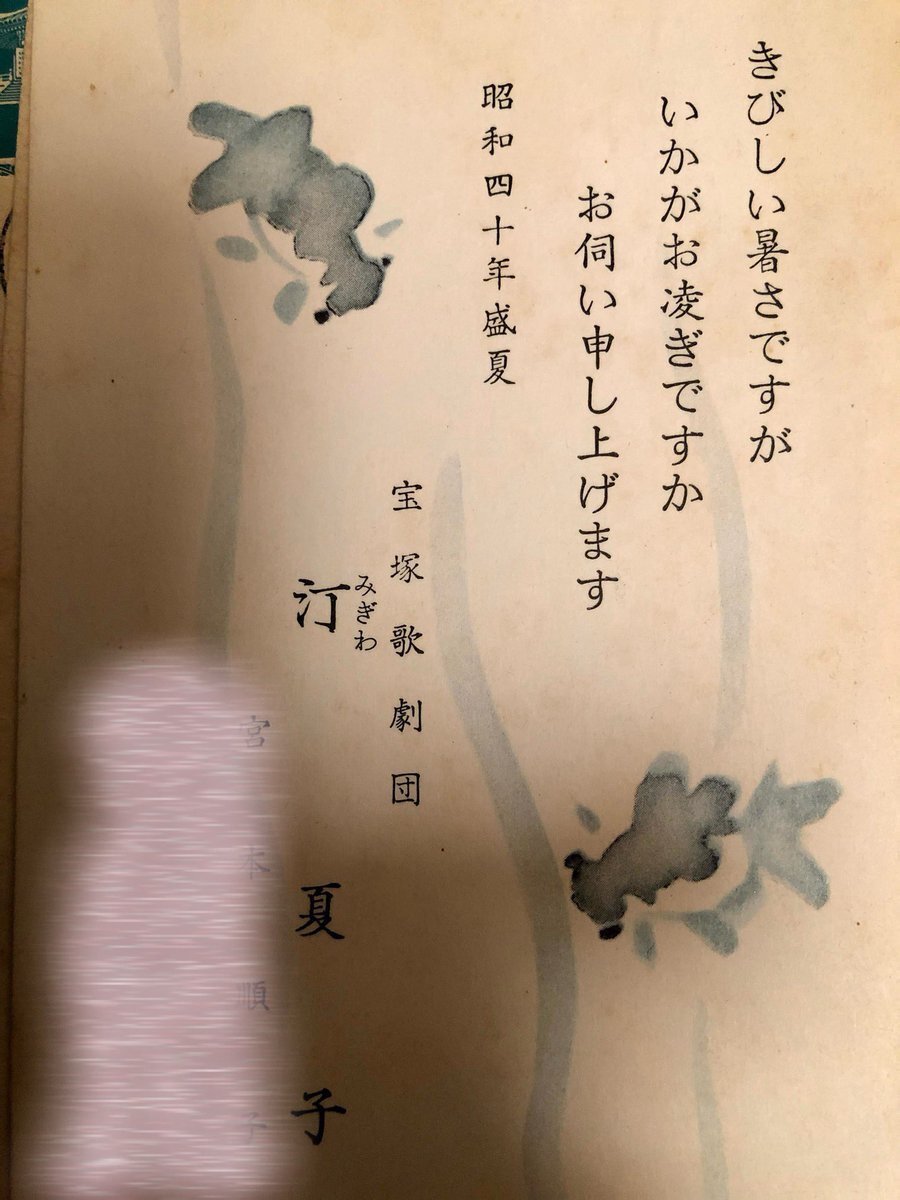 きびしい暑さですが
いかがお凌ぎですか
お伺い申し上げます
昭和四十年盛夏
宝塚歌劇団
みぎわ
汀夏子
宮本順子